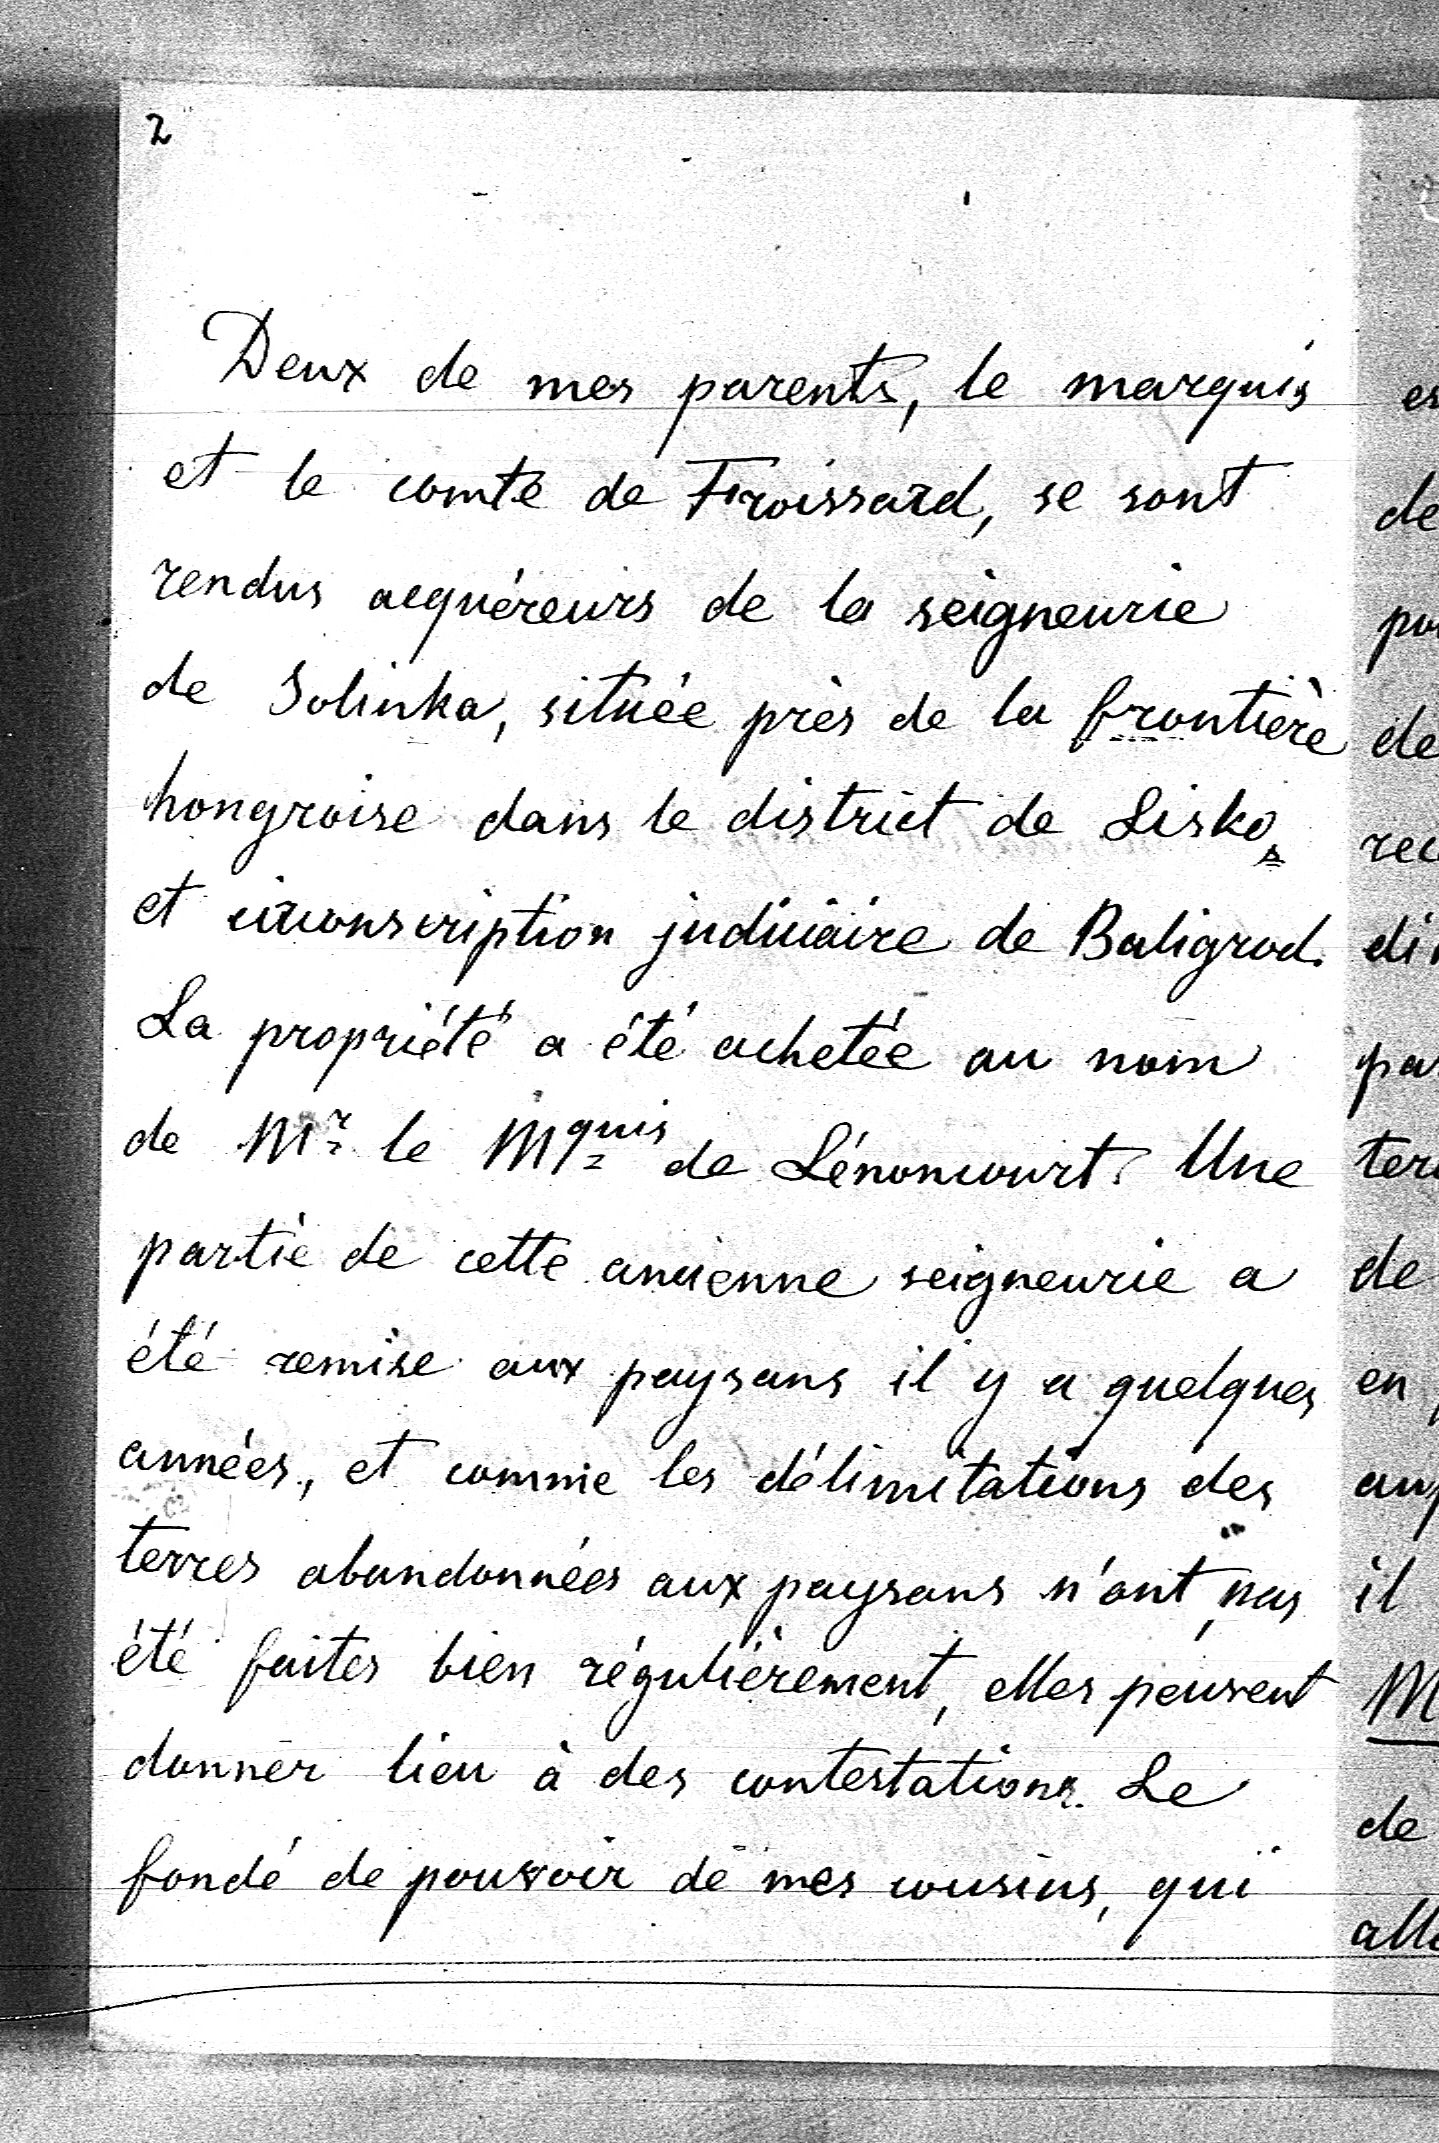 2
Deux de mes parents, le marquis
et le comte de Froissard, se sont
rendus acquéreurs de la seigneurie
de Solinka, située près de la frontière
hongroise dans le district de Lisko
et circonscription judiciaire de Baligrod.
La propriété a été achetée au nom
de Mr le Mquis de Lénoncourt. Une
partie de cette ancienne seigneurie a
été remise aux paysans il y a quelques
années, et comme les délimitations des
terres abandonnées aux paysans n'ont pas
été faites bien régulièrement, elles peuvent
donner lieu à des contestations. Le
fondé de pouvoir de mes cousins, qui